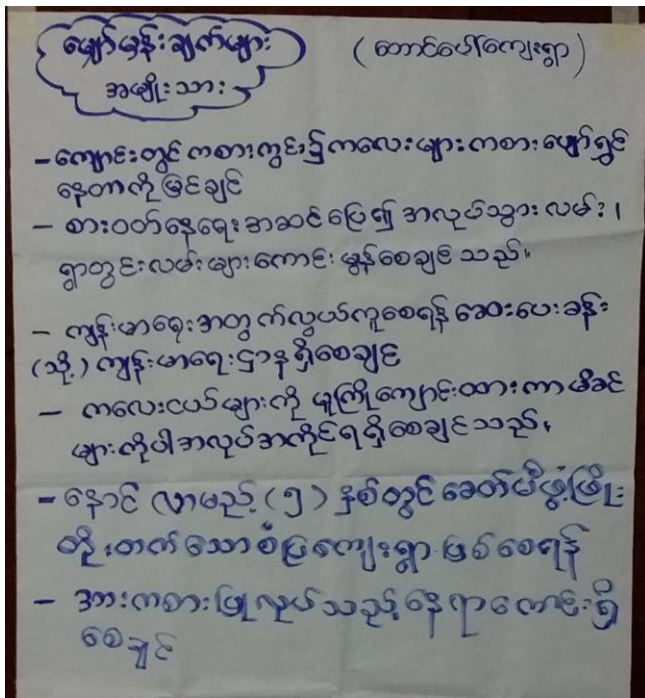 မျှော်မှန်းချက်များ
အမျိုးသား
(တောင်ပေါ်ကျေးရွာ)
- ကျောင်းတွင် ကစားကွင်း၌ ကလေးများ ကစား ပျော်ရွှင်
နေတာကို မြင်ချင်
- စားဝတ်နေရေး အဆင်ပြေ၍ အလုပ်သွား လမ်း ၊
ရွာတွင်း လမ်းများကောင်း မွန်စေချင် သည်။
- ကျန်းမာရေးအတွက်လွယ်ကူစေရန် ဆေးပေးခန်း
(သို့) ကျန်းမာရေးဌာနရှိစေချင်
- ကလေးငယ်များကို မူကြိုကျောင်းထားကာ မိခင်
များကိုပါ အလုပ်အကိုင်ရရှိစေချင်သည်။
- နောင် လာမည့် (၅) နှစ်တွင် ခေတ်မီဖွံ့ဖြိုး
တိုးတက် သော စံပြကျေးရွာ ဖြစ်စေရန်
- အားကစားပြုလုပ်သည့် နေရာကောင်းရှိ
စေချင်